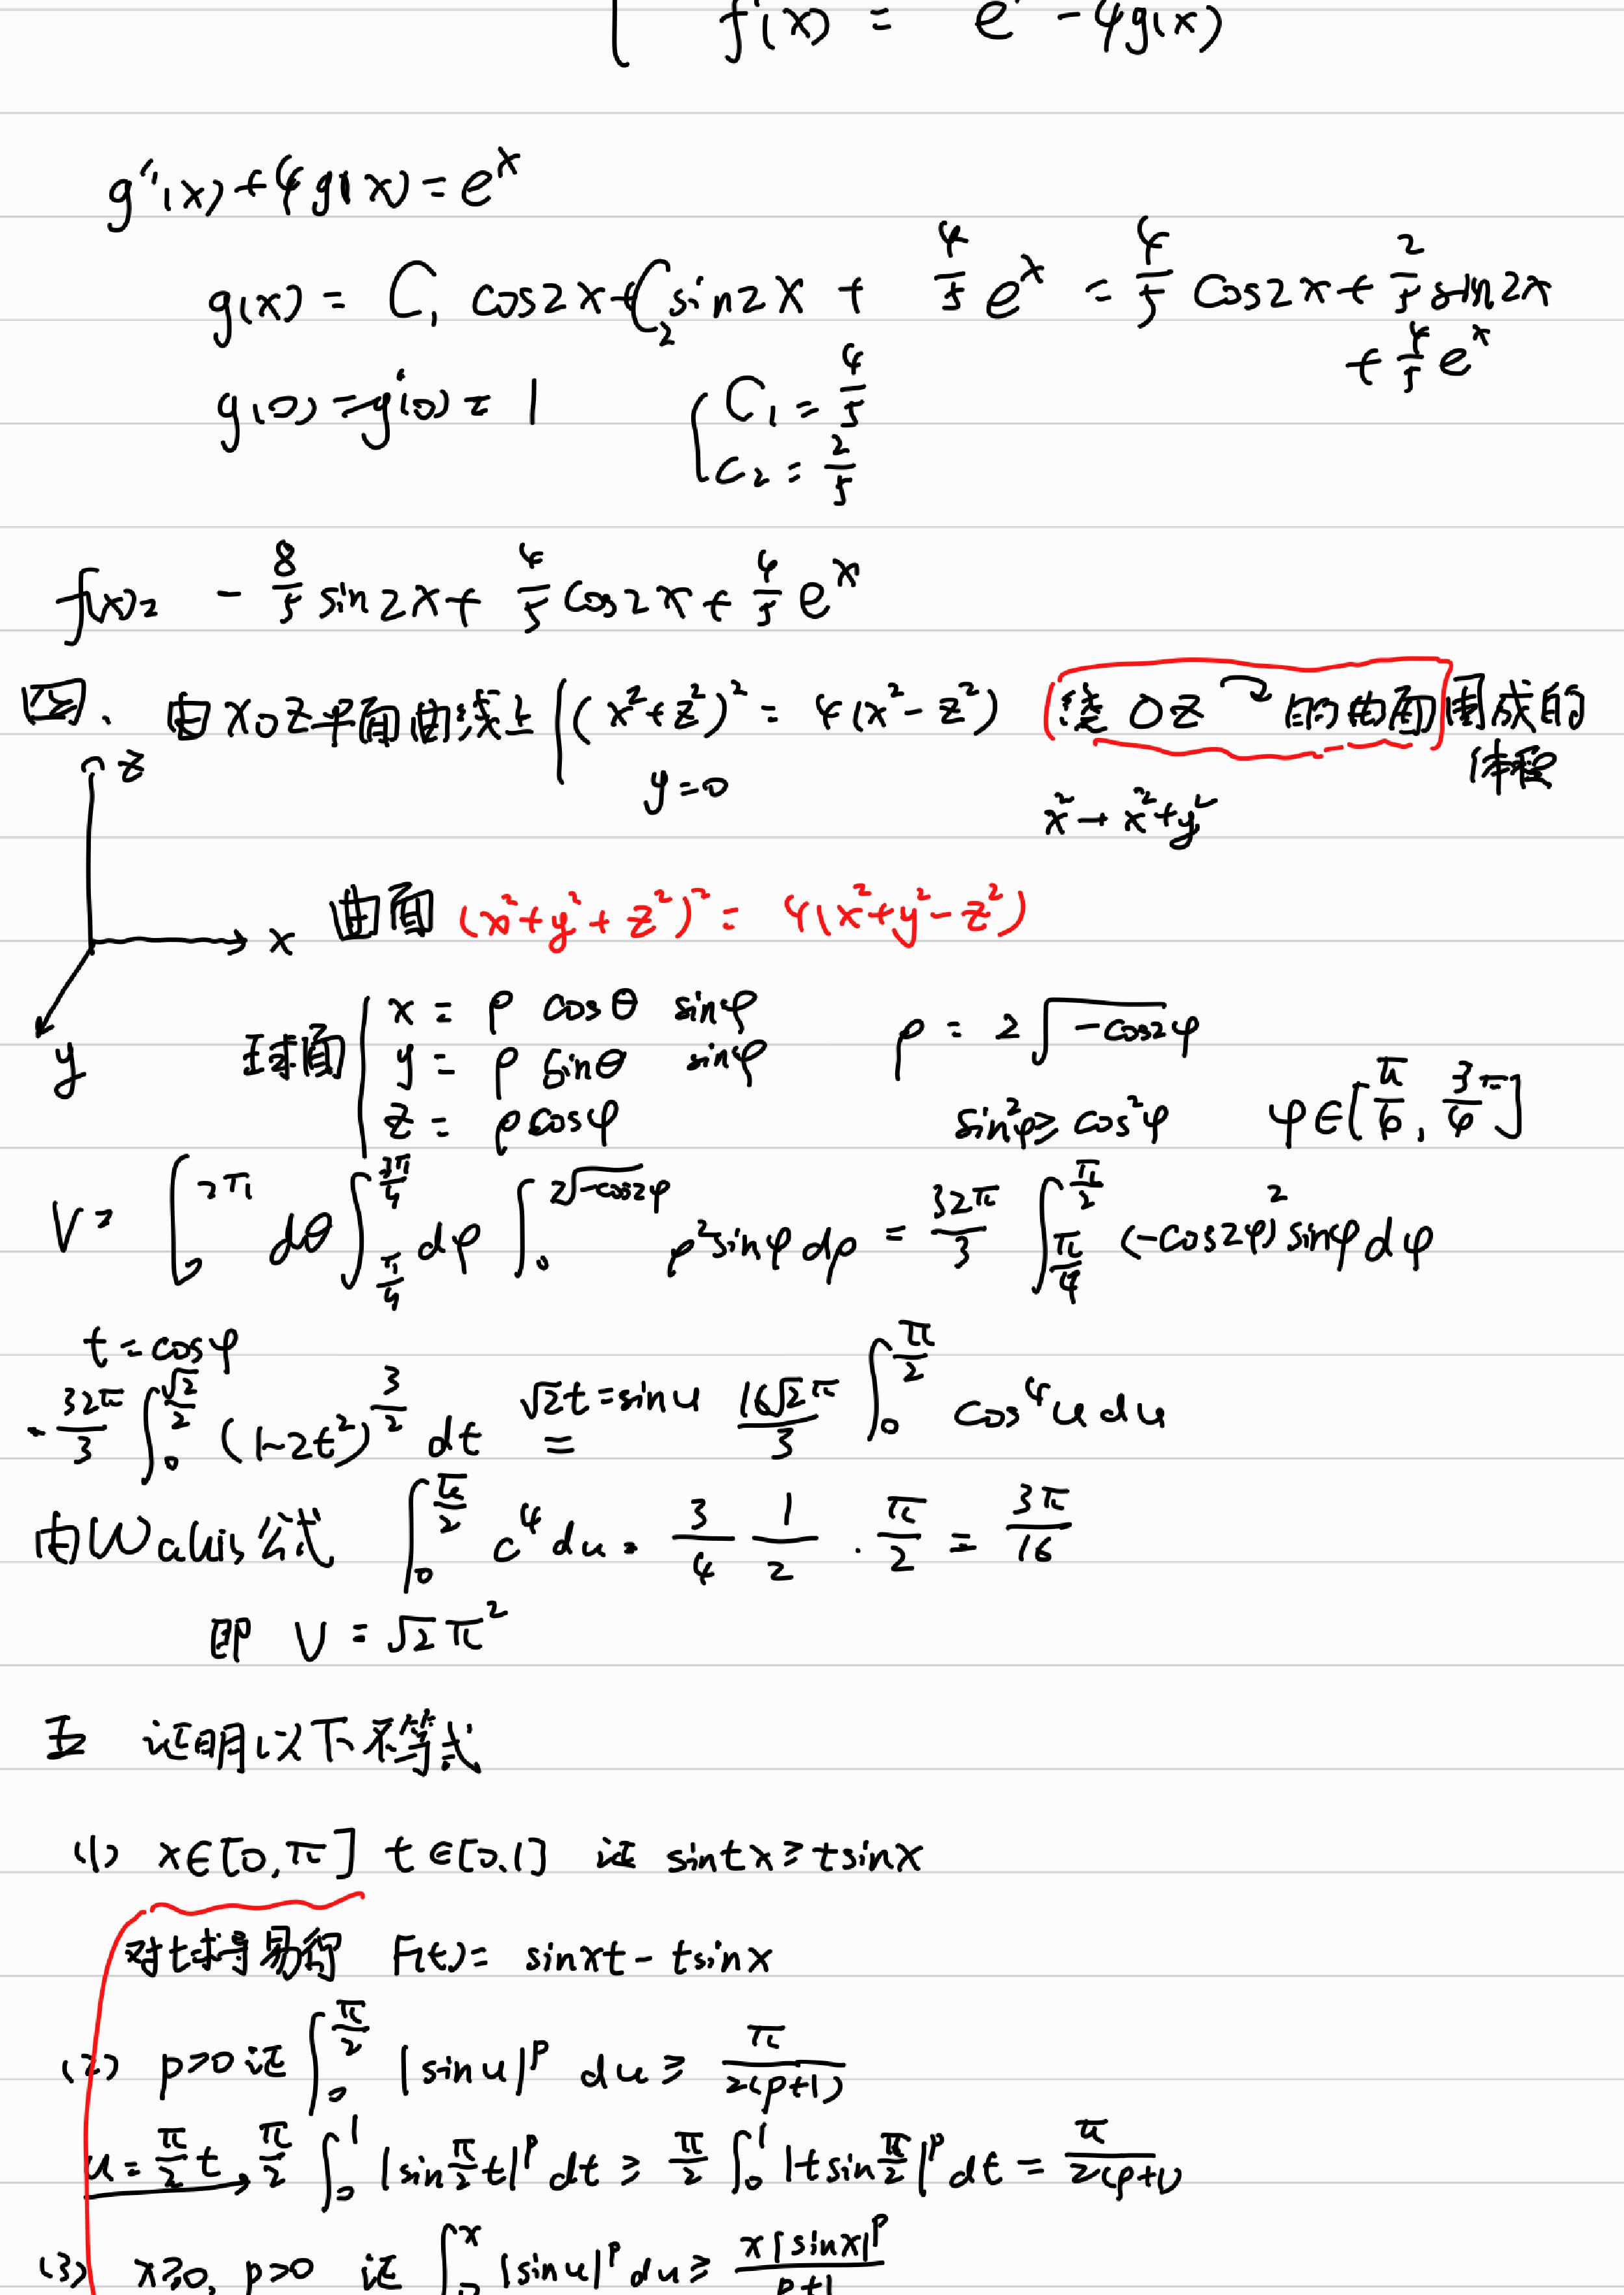 f'(x) = e - 4g(x)
g''(x) + 4g(x) = e^x
g(x) = C₁ cos2x + C₂ sin2x + 4/5 e^x = 4/5 cos2x + 2/5 sin2x
+ 4/5 e^x
g(0) = g'(0) = 1 { C₁ = 4/5
C₂ = 2/5
f(x) = - 8/5 sin2x + 4/5 cos2x + 4/5 e^x
四、 由XOZ平面曲线上 { (x²+z²)² = 4(x²-z²) (绕OZ 的曲面)围成的
体积
y=0
x² → x²+y²
z
x
y
曲面 (x²+y²+z²)² = 4(x²+y²-z²)
球面 { x = ρ cosθ sinφ ρ = 2√(-cos2φ)
y = ρ sinθ sinφ
z = ρcosφ sin²φ ≥ cos²φ φ∈[π/6, 3/6 π]
V = ∫₀^{2π} dθ ∫_{π/4}^{3π/4} dφ ∫₀^{2√(-cos2φ)} ρ² sinφ dρ = 32π/3 ∫_{π/4}^{π/2} (-cos2φ)² sinφ dφ
t = cosφ
= 32π/3 ∫₀^{√2/2} (1-2t²)^{3/2} dt √2t = sinu = 16√2π/3 ∫₀^{π/2} cos⁴u du
由Wallis公式 ∫₀^{π/2} c⁴ du = 3/4 1/2 · π/2 = 3π/16
即 V = √2π²
五 证明以下不等式
(1) x∈[0,π] t∈[0,1] 证 sintx ≥ tsinx
对t求导易得 F(t) = sinxt - tsinx
(2) p>0 证 ∫₀^{π/2} |sinu|^p du ≥ π/2(p+1)
u = π/2 t → π/2 ∫₀¹ |sin π/2 t|^p dt ≥ π/2 ∫₀¹ |t sin π/2|^p dt = π/2(p+1)
(3) x≥0, p>0 证 ∫₀^x |sinu|^p du ≥ x|sinx|^p/p+1